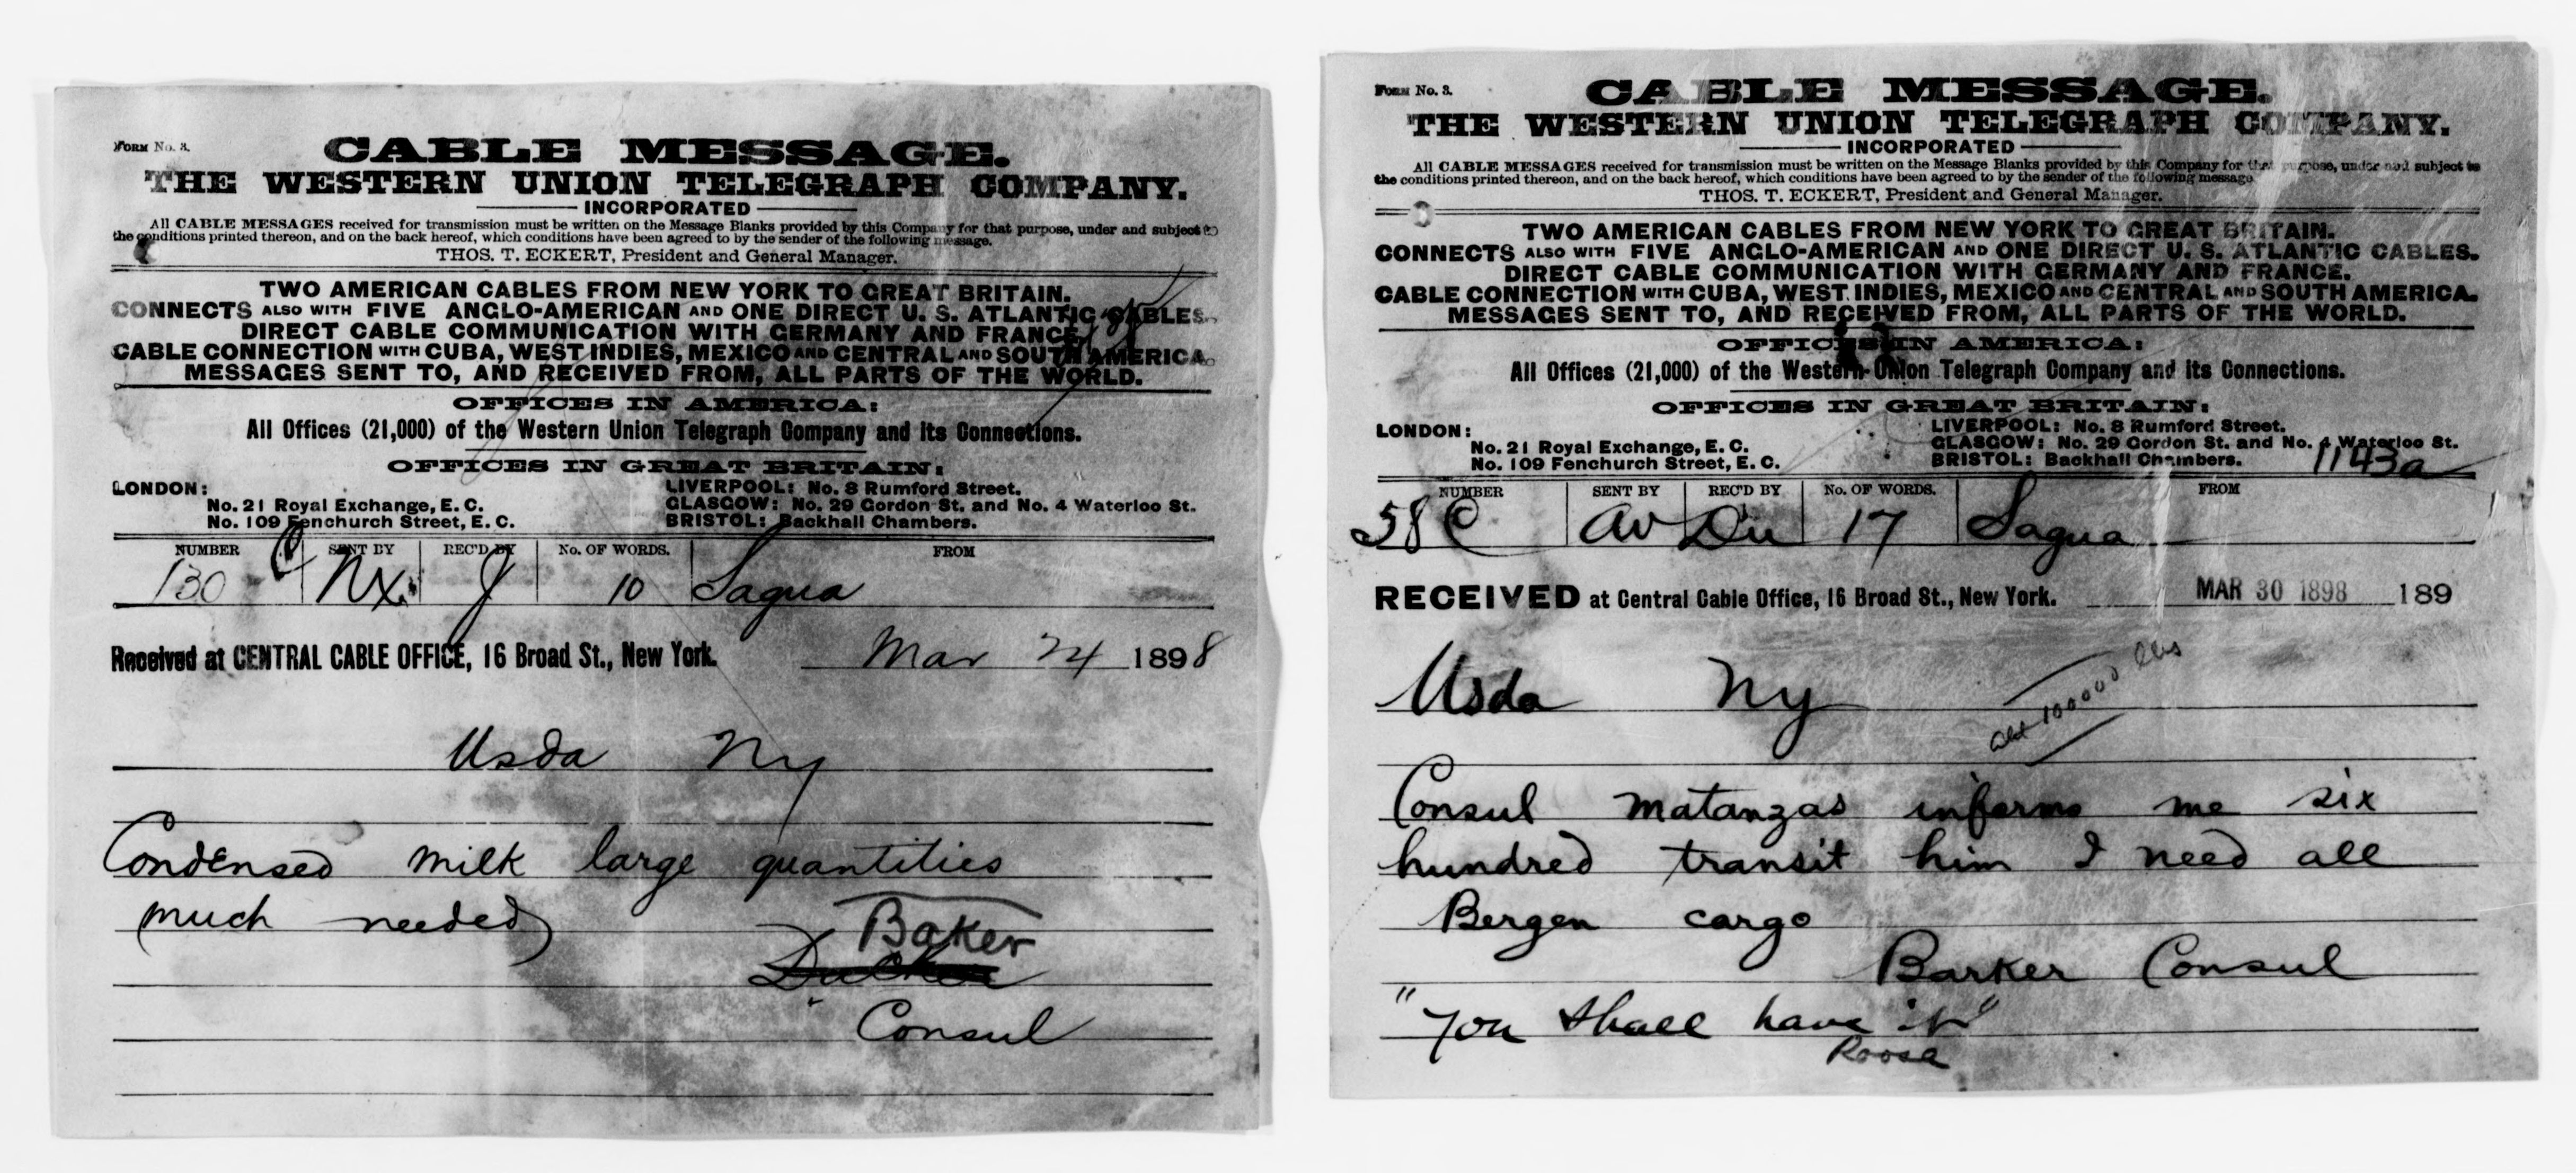 FORM No. 3.
CABLE MESSAGE.
THE WESTERN UNION TELEGRAPH COMPANY.
INCORPORATED
All CABLE MESSAGES received for transmission must be written on the Message Blanks provided by this Company for that purpose, under and subject to
the conditions printed thereon, and on the back hereof, which conditions have been agreed to by the sender of the following message.
THOS. T. ECKERT, President and General Manager.
TWO AMERICAN CABLES FROM NEW YORK TO GREAT BRITAIN.
CONNECTS ALSO WITH FIVE ANGLO-AMERICAN AND ONE DIRECT U. S. ATLANTIC CABLES.
DIRECT CABLE COMMUNICATION WITH GERMANY AND FRANCE.
CABLE CONNECTION WITH CUBA, WEST INDIES, MEXICO AND CENTRAL AND SOUTH AMERICA.
MESSAGES SENT TO, AND RECEIVED FROM, ALL PARTS OF THE WORLD.
OFFICES IN AMERICA:
All Offices (21,000) of the Western Union Telegraph Company and its Connections.
OFFICES IN GREAT BRITAIN:
LONDON:
No. 21 Royal Exchange, E. C.
No. 109 Fenchurch Street, E. C.
LIVERPOOL: No. 8 Rumford Street.
GLASGOW: No. 29 Gordon St. and No. 4 Waterloo St.
BRISTOL: Backhall Chambers.
NUMBER SENT BY REC'D BY No. OF WORDS. FROM
130 C Nx J 10 Sagua
Received at CENTRAL CABLE OFFICE, 16 Broad St., New York. Mar 24 1898
Usda Ny
Condensed milk large quantities
much needed
Baker
Consul
Form No. 3.
CABLE MESSAGE.
THE WESTERN UNION TELEGRAPH COMPANY.
INCORPORATED
All CABLE MESSAGES received for transmission must be written on the Message Blanks provided by this Company for that purpose, under and subject to
the conditions printed thereon, and on the back hereof, which conditions have been agreed to by the sender of the following message
THOS. T. ECKERT, President and General Manager.
TWO AMERICAN CABLES FROM NEW YORK TO GREAT BRITAIN.
CONNECTS ALSO WITH FIVE ANGLO-AMERICAN AND ONE DIRECT U. S. ATLANTIC CABLES.
DIRECT CABLE COMMUNICATION WITH GERMANY AND FRANCE.
CABLE CONNECTION WITH CUBA, WEST INDIES, MEXICO AND CENTRAL AND SOUTH AMERICA.
MESSAGES SENT TO, AND RECEIVED FROM, ALL PARTS OF THE WORLD.
OFFICES IN AMERICA:
All Offices (21,000) of the Western Union Telegraph Company and its Connections.
OFFICES IN GREAT BRITAIN:
LONDON:
No. 21 Royal Exchange, E. C.
No. 109 Fenchurch Street, E. C.
LIVERPOOL: No. 8 Rumford Street.
GLASGOW: No. 29 Gordon St. and No. 4 Waterloo St.
BRISTOL: Backhall Chambers.
1143a
NUMBER SENT BY REC'D BY No. OF WORDS. FROM
58 C Av Du 17 Sagua
RECEIVED at Central Cable Office, 16 Broad St., New York. MAR 30 1898 189
Usda Ny
100000 lbs
Consul matanzas informs me six
hundred transit him I need all
Bergen cargo
Barker Consul
"You shall have it"
Roosa